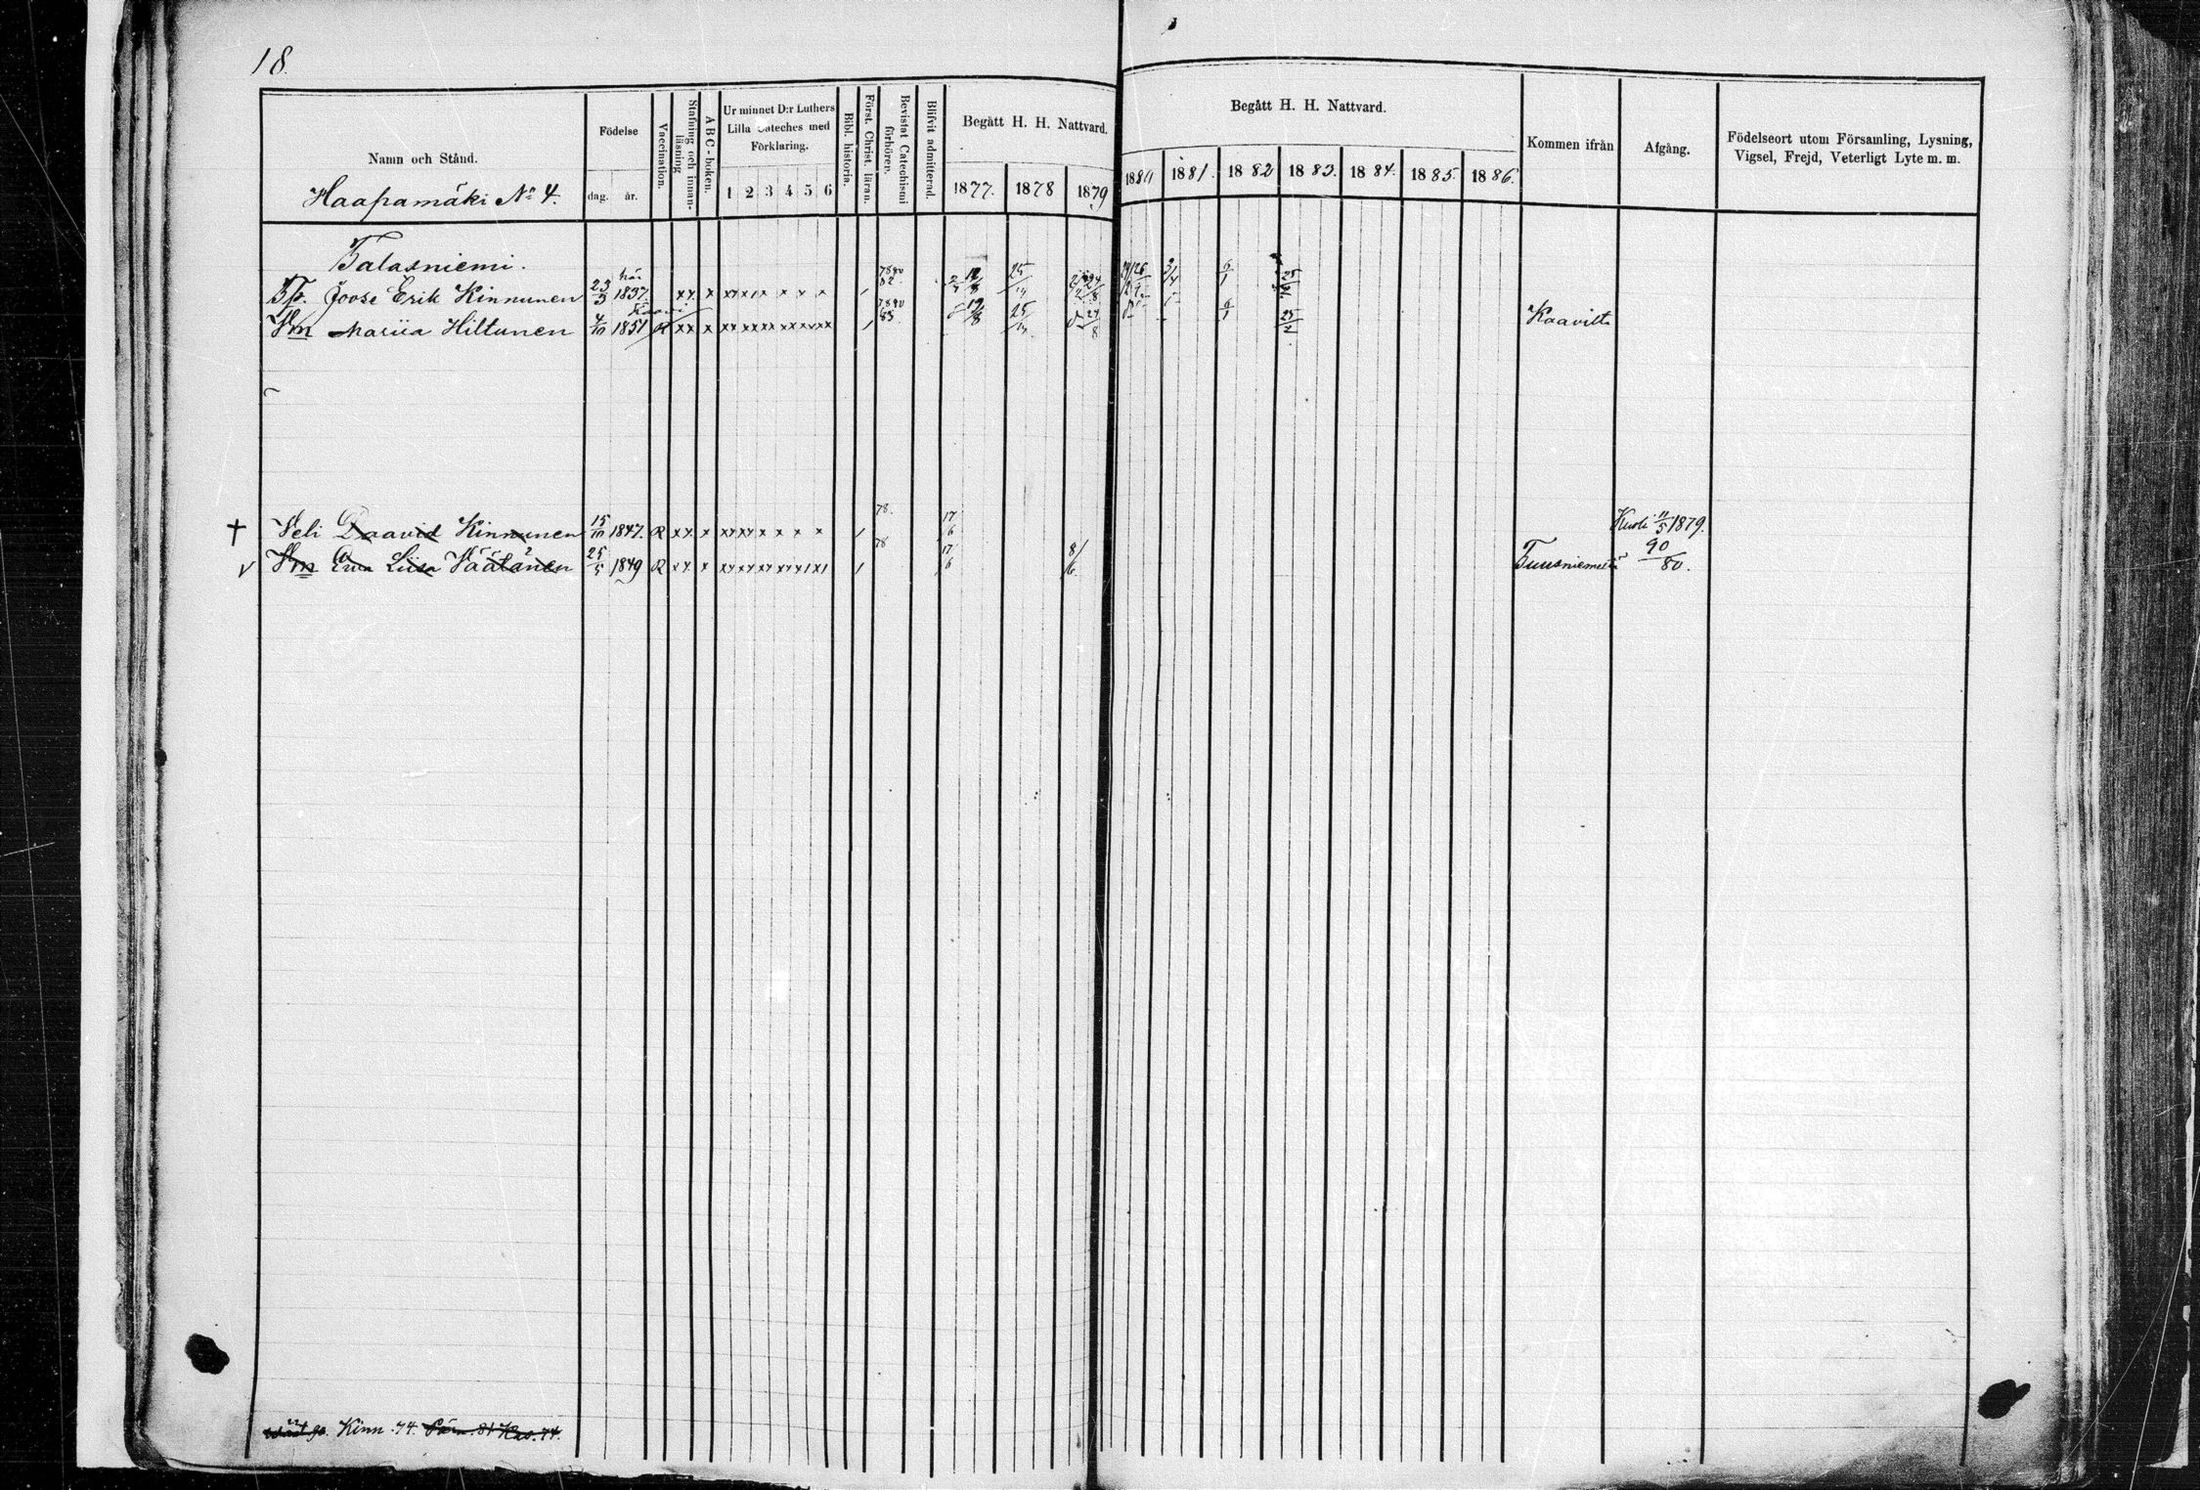 18.
Namn och Stånd.
Haapamäki No 4.
Födelse
dag. år.
Vaccination.
Stafning och innan-läsning
A B C-boken.
Ur minnet D:r Luthers
Lilla Cateches med
Förklaring.
1 2 3 4 5 6
Bibl. historia.
Först. Christ. läran.
Bevistat Catechismi förhörer.
Blifvit admitterad.
Begått H. H. Nattvard.
1877. 1878 1879
Begått H. H. Nattvard.
1880 1881. 1882 1883. 1884. 1885. 1886.
Kommen ifrån
Afgång.
Födelseort utom Församling, Lysning,
Vigsel, Frejd, Veterligt Lyte m. m.
Talasniemi.
Joose Erik Kinnunen 23/3 1837. xx x xx x x x x 78 80 82. 12/8 25 6/1 25
Vm Mariia Hiltunen 4/10 1851 Kaavi R xx x xx xx xx xx xx xx 78 80 83 12/8 25 24/8 6/1 25/2 Kaavilta
† Veli Daavid Kinnunen 15/10 1847. R xx x xx xx x x x x 78. 17/6 Kuoli 11/5 1879.
v Vm Eva Liisa Väätänen 25/5 1849 R xx x 78 17/6 8/6 Tuusniemeltä 90/80.
Kinn. 74.